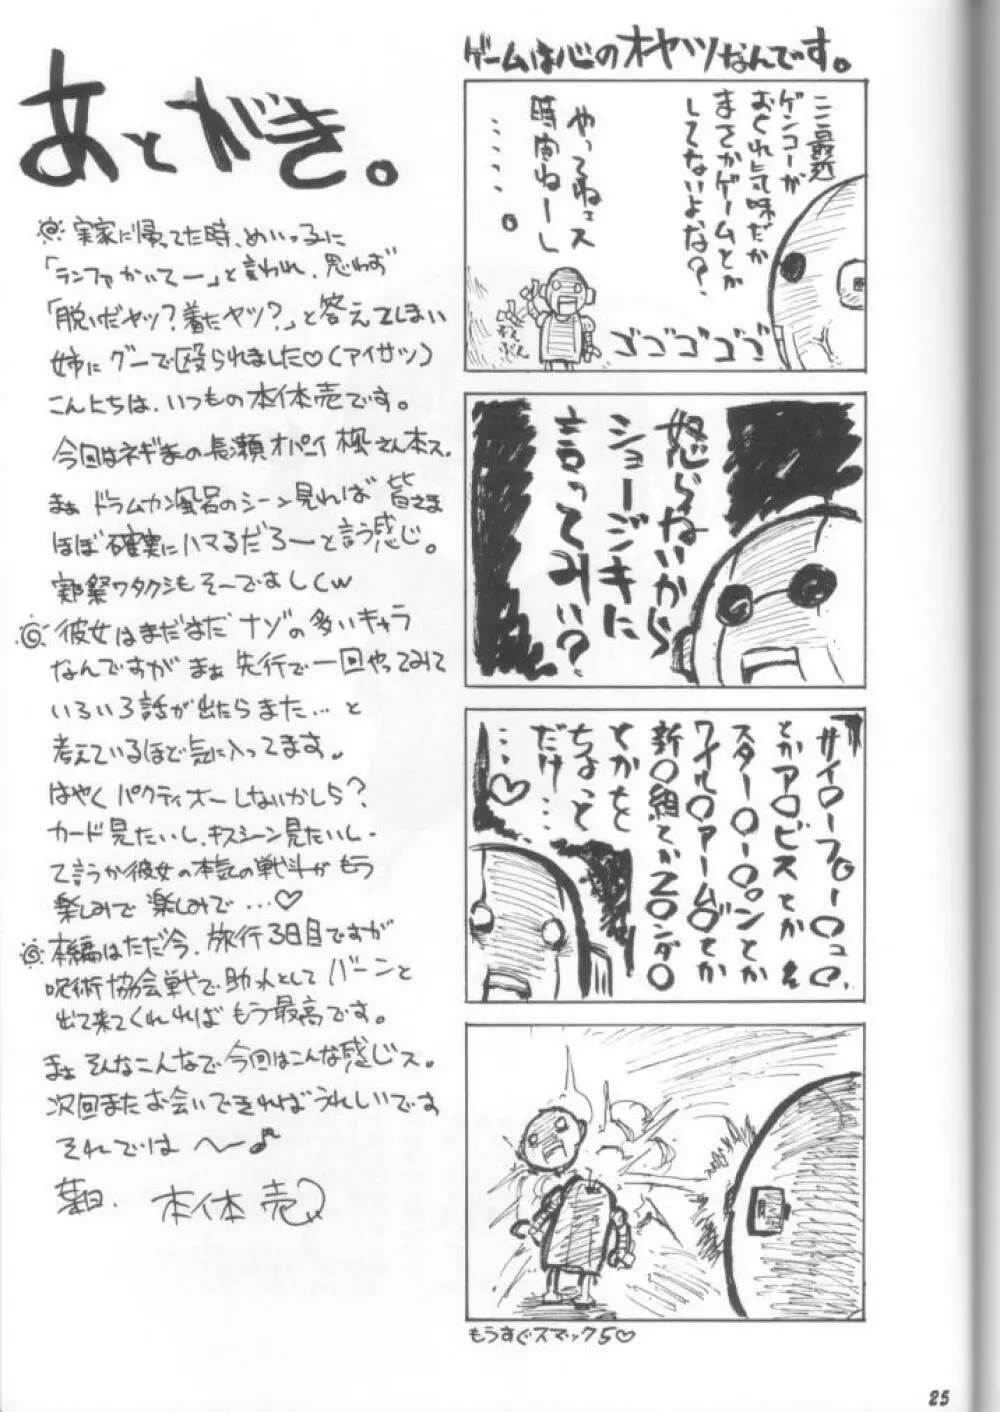 あとがき。
実家に帰ってた時、めいっ子に
「ランファかいてー」と言われ、思わず
「脱いだヤツ?着たヤツ?」と答えてしまい
姉にグーで殴られました♡(アイサツ)
こんにちは、いつもの本体売です。
今回はネギまの長瀬オパーイ楓さん本ス。
まぁドラムカン風呂のシーン見れば皆さま
ほぼ確実にハマるだろーと言う感じ。
実際ワタクシもそーでましくw
◎彼女はまだまだナゾの多いキャラ
なんですがまぁ先行で一回やってみて
いろいろ話が出たらまた…と
考えているほど気に入ってます。
はやくパクティオーしないかしら?
カード見たいし、キスシーン見たいし・
て言うか彼女の本気の戦斗がもう
楽しみで楽しみで…♡
◎本編はただ今、旅行3日目ですが
呪術協会戦で助っ人としてバーンと
出て来てくれればもう最高です。
まぁそんなこんなで今回はこんな感じス。
次回またお会いできればうれしいです
それでは〜♪
本体売
ゲームは心のオヤツなんです。
ここ最近
ゲンコーが
おくれ気味だか
まさかゲームとか
してないよな?
やってねェス
時間ねーし
……。
ゴゴゴゴゴ
怒らねいから
ショージキに
言ってみい?
サイ〇ーフ〇ー〇ュ〇、
とかア〇ビスとか
スター〇ー〇ンとか
ワイル〇アーム〇とか
新〇組とかZ〇ンダ〇
とかを
ちょっと
だけ…
…♡
脳
もうすぐスマック5♡
25